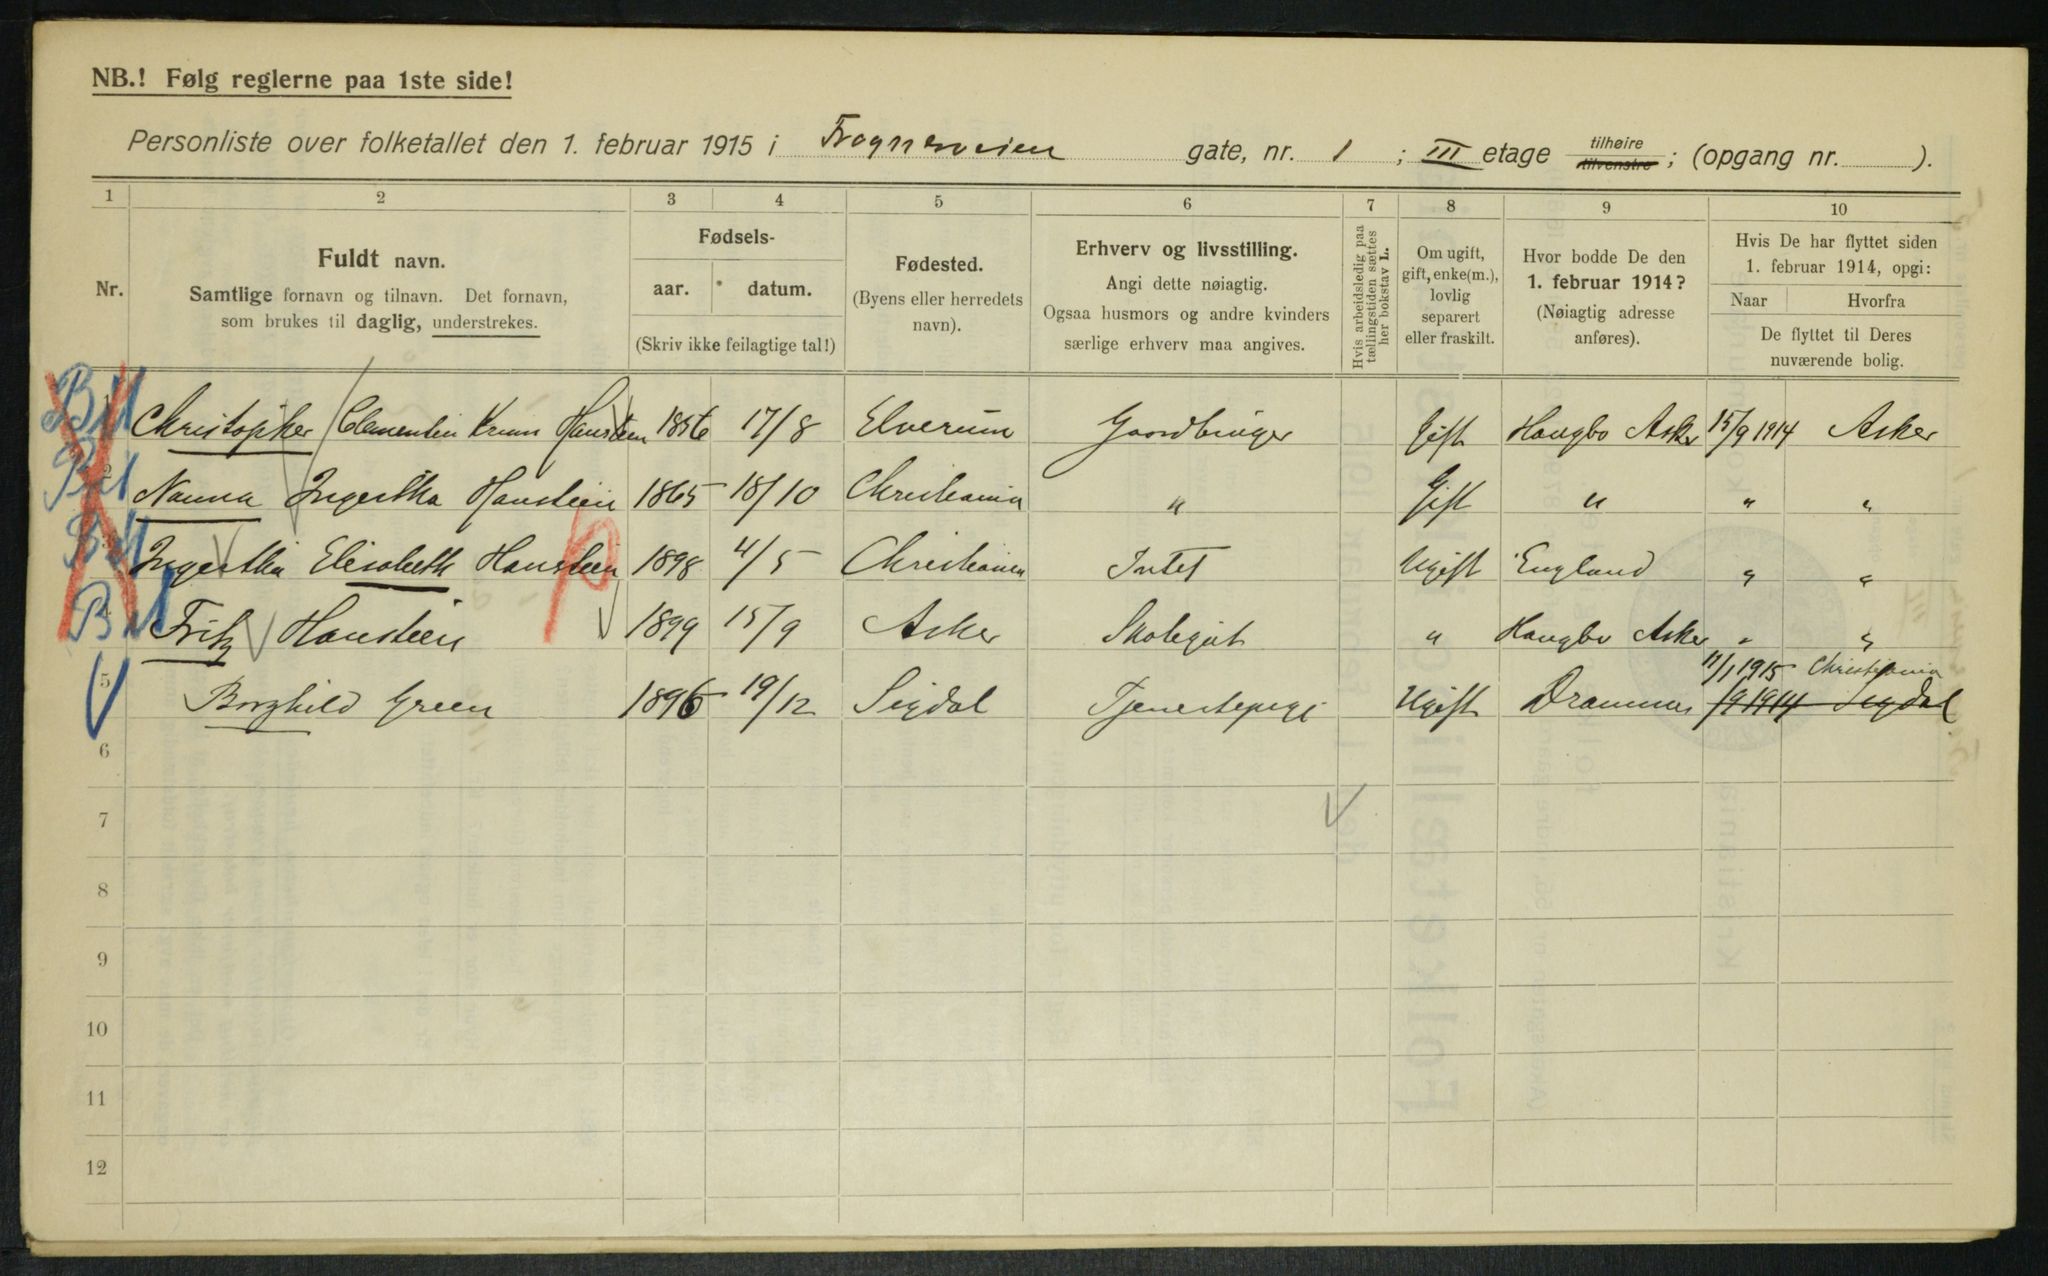 NB.! Følg reglerne paa 1ste side!
Personliste over folketallet den 1. februar 1915 i Frognerveien gate, nr. 1 ; III etage tilhøire tilvenstre ; (opgang nr. ).
1 2 3 4 5 6 7 8 9 10
Nr.
Fuldt navn.
Samtlige fornavn og tilnavn. Det fornavn,
som brukes til daglig, understrekes.
Fødsels-
aar. datum.
(Skriv ikke feilagtige tal!)
Fødested.
(Byens eller herredets
navn).
Erhverv og livsstilling.
Angi dette nøiagtig.
Ogsaa husmors og andre kvinders
særlige erhverv maa angives.
Hvis arbeidsledig paa
tællingstiden sættes
her bokstav L.
Om ugift,
gift, enke(m.),
lovlig
separert
eller fraskilt.
Hvor bodde De den
1. februar 1914?
(Nøiagtig adresse
anføres).
Hvis De har flyttet siden
1. februar 1914, opgi:
Naar Hvorfra
De flyttet til Deres
nuværende bolig.
Christopher Clementin Hansteen 1856 17/8 Elverum Gaardbruger Gift Haugbo Asker 15/9 1914 Asker
2 Nanna Ingertha Hansteen 1865 18/10 Christiania " Gift " " "
3 Ingertha Elisabeth Hansteen 1898 4/5 Christiania Intet Ugift England " "
4 Fritz Hansteen 1899 15/9 Asker Skolegut " Haugbo Asker " "
11/1 1915 Christiania
5 Borghild Green 1896 19/12 Sigdal Tjenestepige Ugift Drammen /9 1914 Sigdal
6
7
8
9
10
11
12